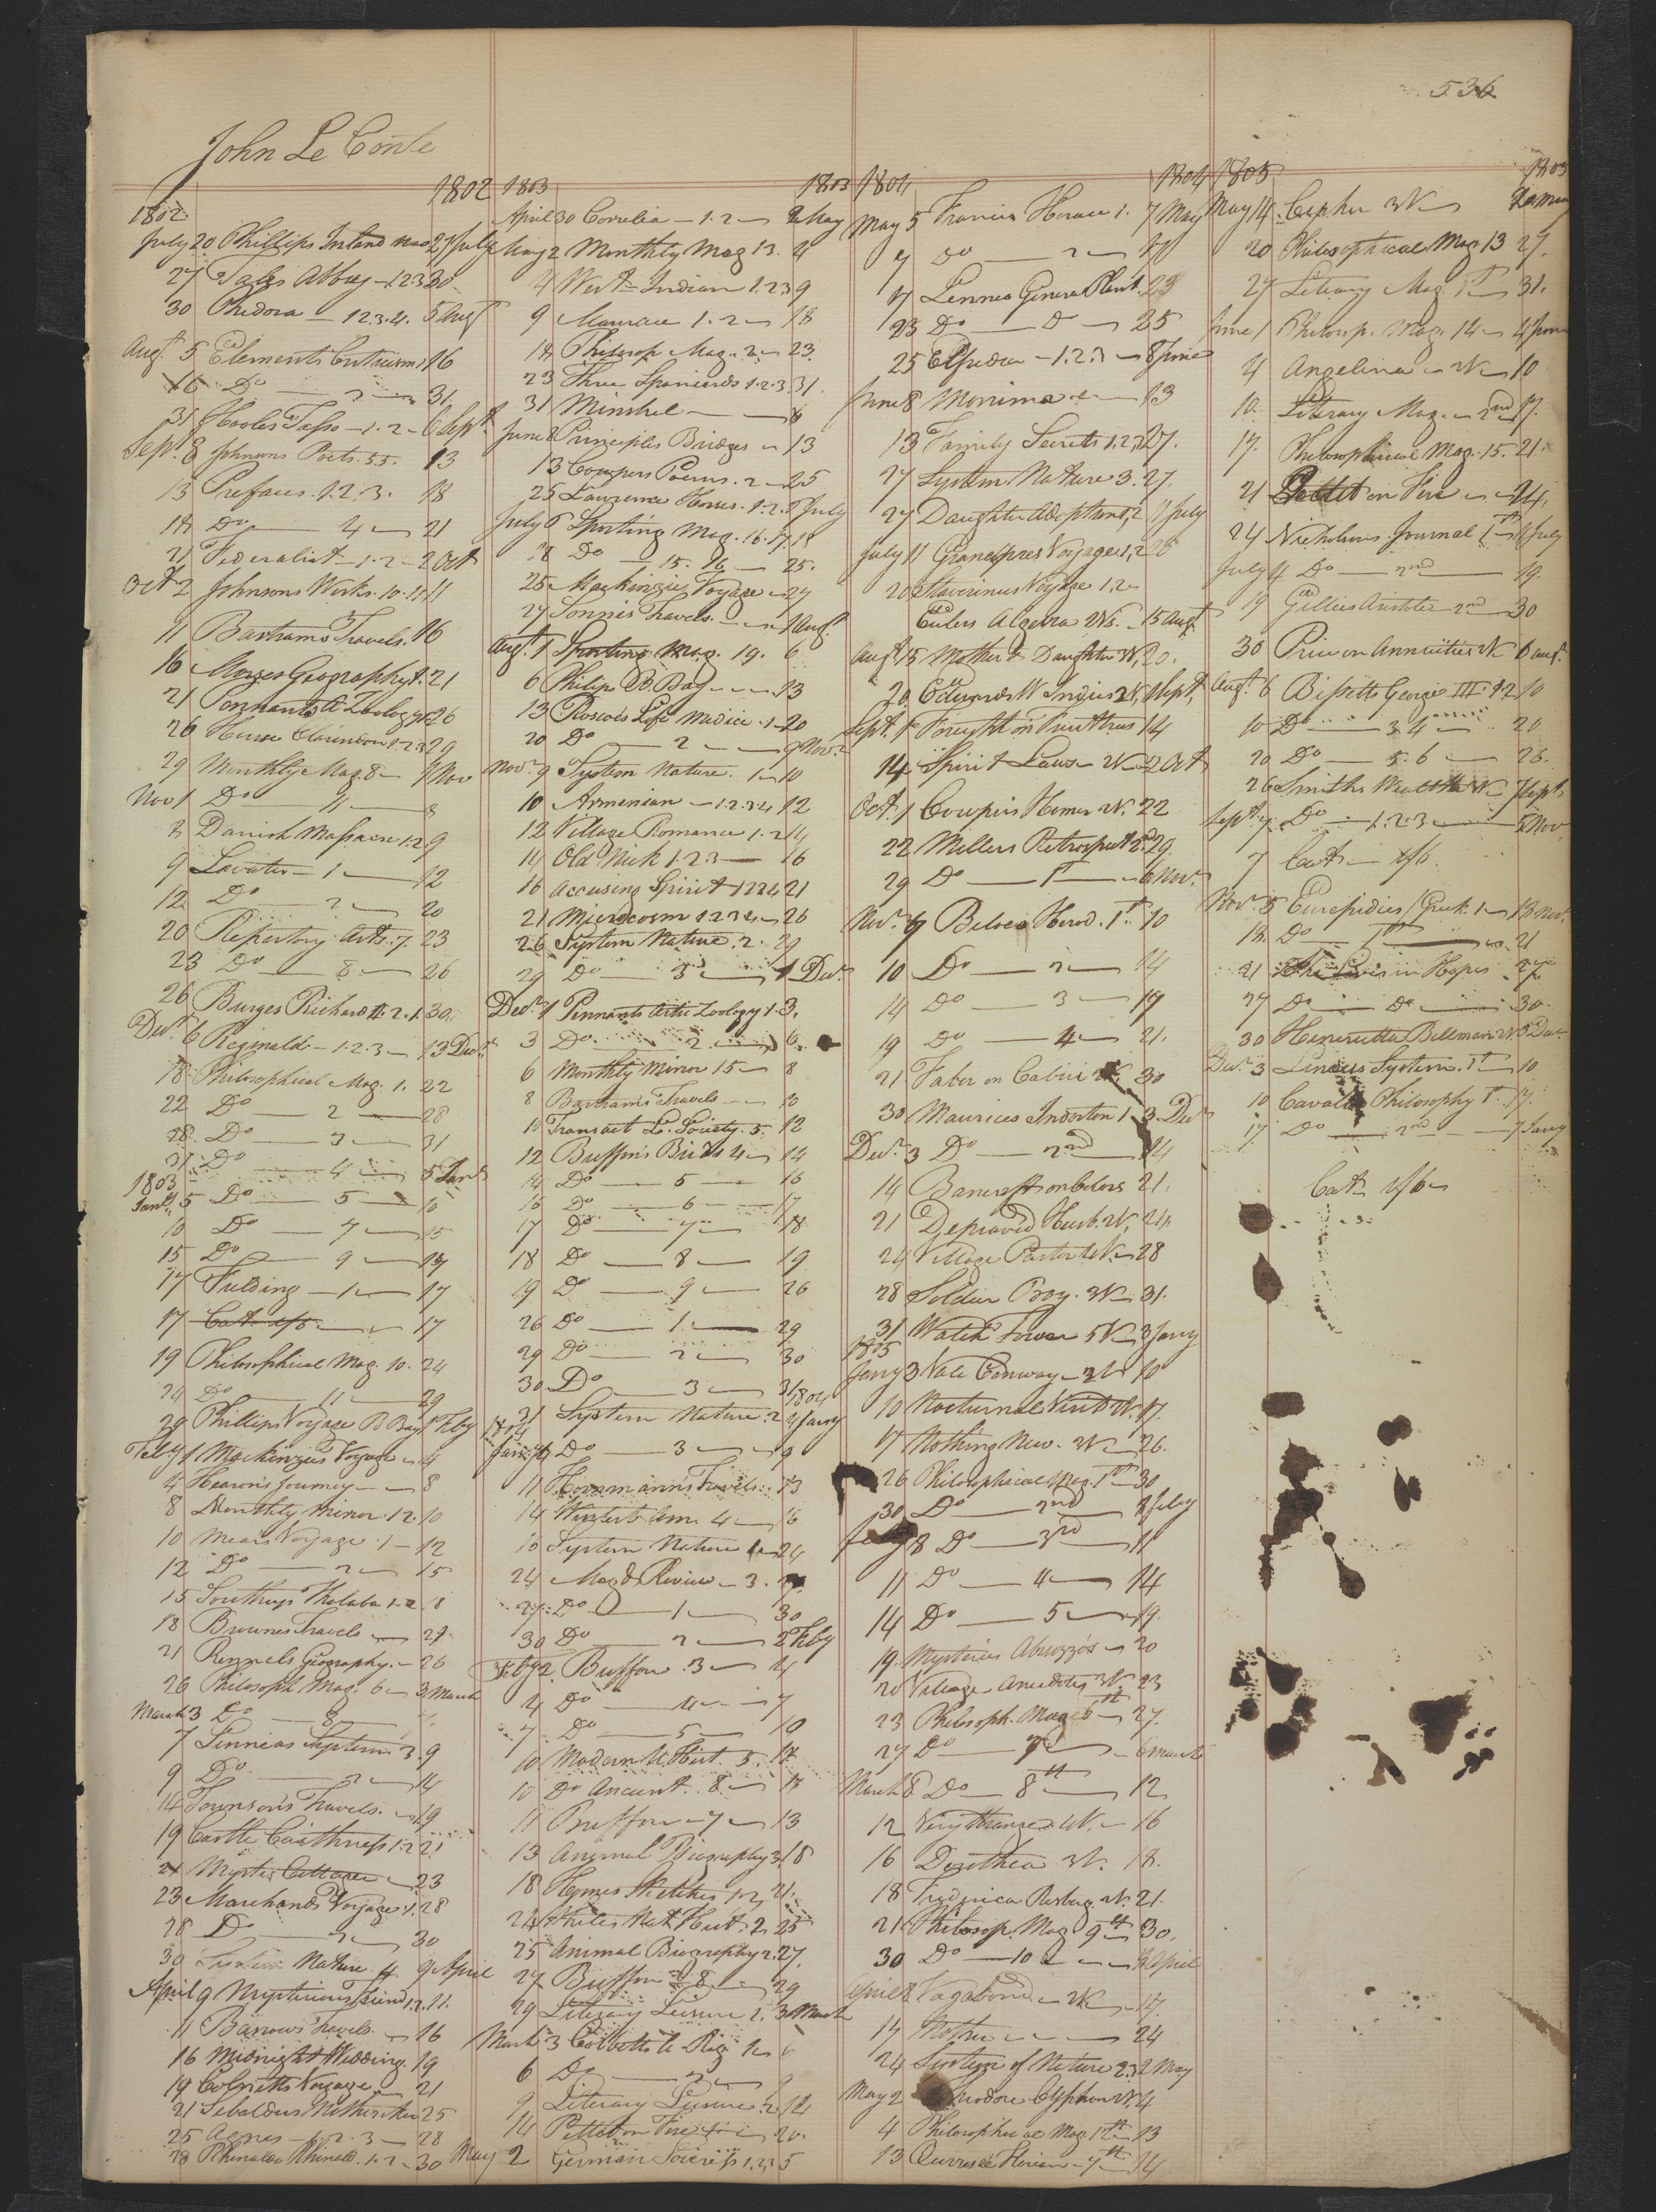 536
John Le Conte
1802 1802
July 20 Phillips Inland Nav 27 July
27 Tales Abbey - 1.2.3 30
30 Phedora - 1 2.3.4. 5 Augt
Augt. 5 Elements Criticism 1 16
16 Do 2 31
31 Hooles Tasso - 1.2 - 6 Sept
Sept. 8 Johnsons Poets. 55. 13
13 Prefaces. 1.2.3. 18
18 Do 4 21
21 Federalist - 1.2 - 2 Oct
Oct 2 Johnsons Works. 10.11 11
11 Bartrams Travels. 16
16 Morses Geography 1. 21
21 Pennants Zoology 26
26 Clarendon 1.2.3 29
29 Monthly Mag. 8 - 1 Nov
Nov 1 Do 11 8
8 Danish Massacre 1.2 9
9 Lavater - 1 12
12 Do 2 20
20 Repertory Arts. 7. 23
23 Do 8 26
26 Burges Richard 1t. 2. 1. 30
Decr. 6 Reginald - 1.2.3 - 13 Decr.
18 Philosophical Mag. 1. 22
22 Do 2 28
28 Do 3 31
31 Do 4 5 Jany
1803
Jany. 5 Do 5 10
10 Do 7 15
15 Do 9 17
17 Fielding - 1 17
17 Cat 1/6 17
19 Philosophical Mag. 10. 24
24 Do 11 29
29 Phillips Voyage B Bay 1 Feby
Feby 1 Mackenzies Voyage 4
4 Hearons Journey 8
8 Monthly Mirror. 12. 10
10 Mears Voyage. 1 - 12
12 Do 2 15
15 Southeys Thalaba 1.2. 18
18 Brownes Travels 21
21 Rennels Geography. - 26
26 Philosoph. Mag. 6 3 March
March 3 Do 8
7 Linneas System 3. 9
9 Do 2 14
14 Townsons Travels. 19
19 Castle Caithness 1.2 21
21 Mystic Cottager 23
23 Marchands Voyage 1. 28
28 Do 2 30
30 System Nature. 4 9 April
April 9 Mysterious Friend 1.2. 11.
11 Barrows Travels. 16
16 Midnight Wedding. 19
19 Colnetts Voyage 21
21 Sebaldus Nothanker 25
25 Agnes - 1.2.3 - 28
28 Rhinaldo Rhinald. 1.2 - 30
1803 1803
April 30 Corvelia - 1.2 2 May
May 2 Monthly Mag 13. 4
4 West Indian 1.2.3 9
9 Maurace 1.2 18
18 Philosop Mag. 2. 23.
23 Three Spaniards 1.2.3 31.
31 Minstrel 8
June 8 Principles Bridges 13
13 Cowpers Poems. 2 25
25 Lawrence Horses. 1.2. 8 July
July 8 Sporting Mag. 16. 17. 18
18 Do 15. 16 25.
25 Mackinzies Voyage 27
27 Sonnis Travels. 1 Augt.
Augt. 1 Sporting Mag. 19. 6
6 Philips B. Bay 13
13 Roscoes Life Medici. 1 20
20 Do 2 9 Novr.
Novr. 9 System Nature. 1 10
10 Armenian - 1.2.3.4 12
12 Village Romance 1.2 14
14 Old Nick 1.2.3 16
16 Accusing Spirit 1 2 3 4 21
21 Microcosm 1.2.3.4 26
26 System Nature. 2. 29
29 Do 3 1 Decr.
Decr. 1 Pennants Artic Zoology 1. 3.
3 Do 2 6
6 Monthly Mirror 15 8
8 Bartrams Travels 10
10 Transact L. Society. 5. 12
12 Buffons Birds 4 14
14 Do 5 16
16 Do 6 17
17 Do 7 18
18 Do 8 19
19 Do 9 26
26 Do 1 29
29 Do 2 30
30 Do 3 31
1804
31 System Nature. 2 4 Jany
1804
Jany. 4 Do 3 9
11 Hornmanns Travels. 13
14 4 16
16 System Nature 24
24 Mag & Review - 3.
27 Do 1 30
30 Do 2 2 Feby
Feby 2 Buffon. 3 4
4 Do 4 7
7 Do 5 10
10 Modern U. Hist. 5.
10 Do Ancient. 8
11 Buffon - 7 13
13 Animal Biography 3. 18
18 Hymes Sketches 1.2 21.
21 Whites Nat. Hist. 2 25
25 Animal Biography 2. 27.
27 Buffon 8. 29
29 Literary Leisure 1. 3 March
March 3 Cobbetts 1 6
6 Do 2 9
9 Literary Leisure. 2. 14
14 Pettet on Fire 20.
May 2 German Sorceress 1.2.3 5
1804 1804
May 5 Francis Horace 1. 7 May
7 Do 2 17
17 Lennes Genera Plant. 23
23 Do D 25
25 Elfrida - 1.2.3 - 8 June
June 8 Monima 13
13 Family Secrets 1.2.3 27.
27 System Nature 3. 27.
27 Daughter Adoption 1,2 11 July
July 11 Grandpres Voyage 1,2 20
20 Staverinus Voyage 1,2
Eulers Algebra 2Vs. - 15 Augt
Augt. 15 Mother & Daughter 3V, 20.
20 Edwards W Indies 2V, 1 Sept,
Sept. 1 Forsyth on Fruit trees 14
14 Spirit Laws 2V 2 Oct
Oct. 1 Cowpers Homer 2V. 22
22 Millers Retrospect 2d 29
29 Do 1 6 Novr.
Novr. 6 Beloes Herod. 1st. 10
10 Do 2 14
14 Do 3 19
19 Do 4 21.
21 Faber on Cabiri 2V. 30
30 Maurices Indostan 1. 3 Decr
Decr. 3 Do 2nd 14
14 Bancroft on Colors 21.
21 Depraved Husb. 2V, 24,
24 Village Pastor 2V. 28
28 Soldier Boy. 3V 31.
31 Watch Tower 5V 3 Jany
1805
Jany 3 Vale Conway 2V 10
10 Nocturnal Visit 4V. 17.
17 Nothing New. 3V 26.
26 Philosophical Mag. 1st 30
30 Do 2nd 8 Feby
Feby 8 Do 3rd 11
11 Do 4 14
14 Do 5 19.
19. Mysteries Abruzzos 20
20 Village Anecdotes 3V. 23
23 Philosoph. Mag 6th 27.
27 Do 7 6 March
March 8 Do 8th 12
12 Very Strange 2V. 16
16 Dorothea 3V. 18.
18 Fredrica Risberg 2V. 21.
21 Philosop. Mag 9th 30.
30 Do 10 8 April
April 8 Vagabond 2V 17.
17 Mother 24
24 System of Nature 2.3 2 May
May 2 Theodore Cyphon 2V. 4
4 Philosophical Mag. 11th 13
13 Œuvres de Florian 7th 14
1805 1805
May 14 Cypher 3V 20 May
20 Philosophical Mag 13 27.
27 Literary Mag. 1st 31.
June 1 Philosop. Mag. 14 4 June
4 Angelina 2V 10
10. Literary Mag. 2nd 17.
17. Philosophical Mag. 15. 21.
21 Pettet on Fire 24,
24 Nicholsons Journal 1st 4 July
July 4 Do 2nd 19.
19 Gillies Aristotle 2nd 30
30 Price on Annuities 2V 6 augt.
Augt. 6 Bissetts George III 1.2 10
10 Do 3 4 20
20 Do 5. 6 26.
26 Smiths Wealth 7 Sept
Sept. 7 Do 1.2.3 5 Nov.
7 Cat 1/6
Novr. 5 Eurepidies / Greek. 1 18 Nov.
18. Do 1st 21
21 27
27 Do Do 30.
30 Henrietta Bellman 2V 3 Decr
Decr. 3 Lineus System. 1st 10
10 Cavallos Philosophy 1st. 17.
17 Do 2nd 7 Jany
Cat 1/6